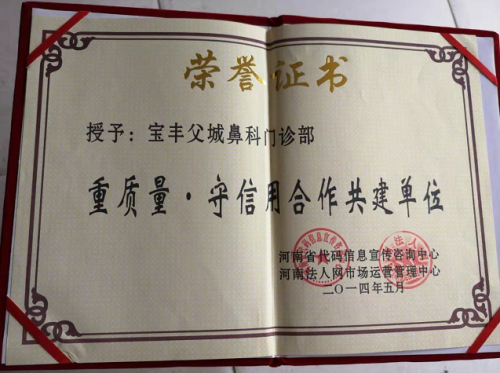 荣誉证书
授予：宝丰父城鼻科门诊部
重质量·守信用合作共建单位
河南省代码信息宣传咨询中心
河南法人网市场运营管理中心
二〇一四年五月